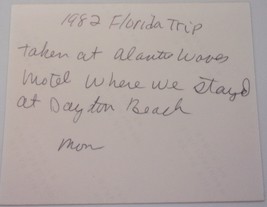 1982 Florida Trip
taken at Alante Waves
Motel where we stayd
at Dayton Beach
Mom